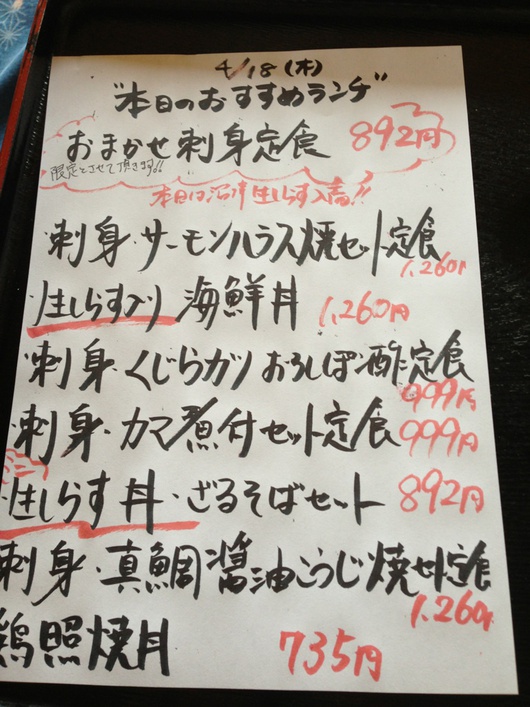 4/18(木)
"本日のおすすめランチ"
おまかせ刺身定食 892円
限定とさせて頂きます!!
本日は沼津生しらす入荷!!
刺身・サーモンハラス焼セット定食
1,260円
生しらす入り 海鮮丼 1,260円
刺身・くじらカツおろしぽん酢定食
999円
刺身・カマ煮付セット定食 999円
生しらす丼・ざるそばセット 892円
刺身・真鯛醤油こうじ焼セット定食
1,260円
鶏照焼丼 735円